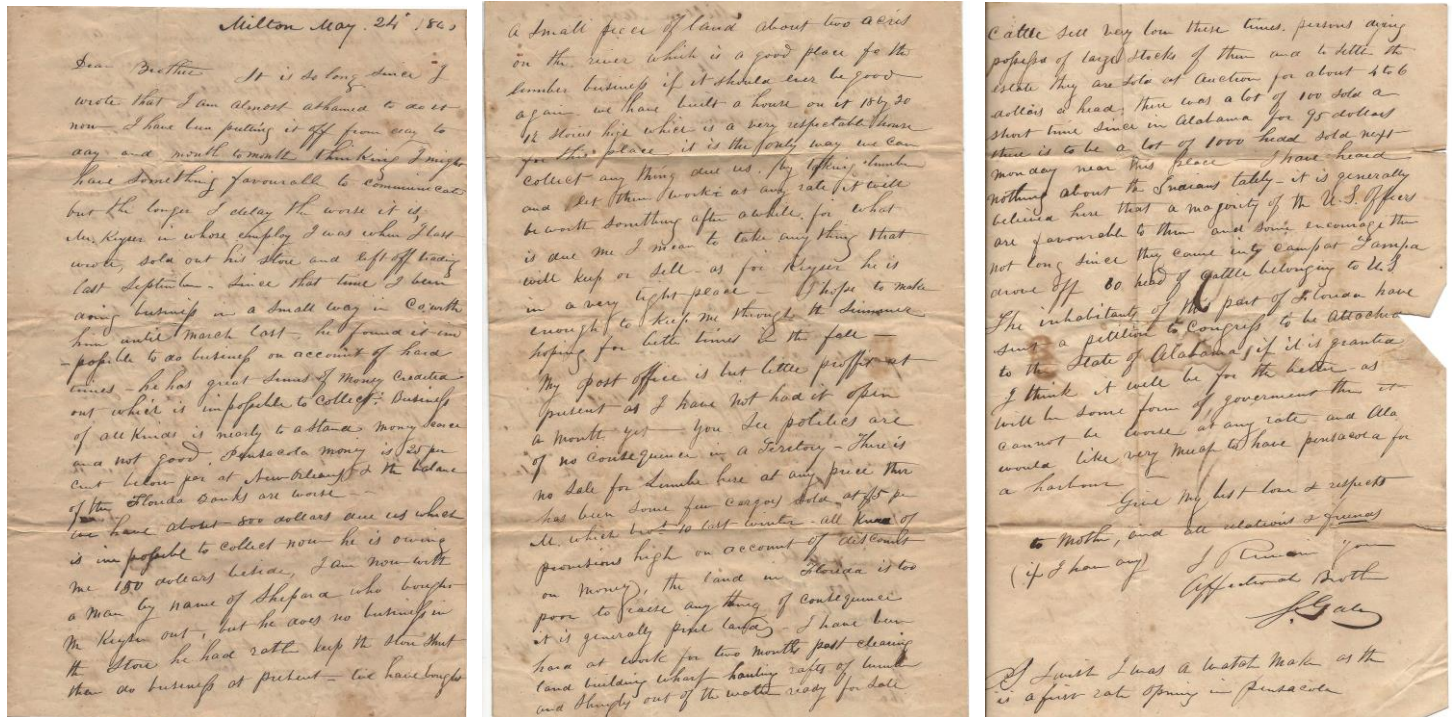 Milton May. 24 184
Dear Brother It is so long since I
wrote that I am almost ashamed to do it
now, I have been putting it off from day to
day and month to month thinking I might
have something favourable to communicate
but the longer I delay the worse it is,
Mr. Keyser in whose employ I was when I last
wrote, sold out his store and left off trading
last September - Since that time I been
doing business in a small way in Co with
him until March last - he found it im
-possible to do business on account of hard
times - he has great sums of money credited
out which is impossible to collect. Business
of all Kinds is nearly to a stand money scarce
and not good. Pensacola money is 25 per
cent below par at New Orleans & the balance
of the Florida banks are worse -
we have about 800 dollars due us which
is impossible to collect now he is owing
me 150 dollars beside, I am now with
a man by name of Shepard who bought
Mr Keyser out, but he does no business in
the store he had rather keep the store shut
then do business at present - we have bought
a small piece of land about two acres
on the river which is a good place fo the
lumber business if it should ever be good
again we have built a house on it 18 by 20
1½ stories high which is a very respectable house
for this place it is the only way we can
collect any thing due us, by taking lumber
and let them work at any rate it will
be worth something after awhile, for what
is due me I mean to take any thing that
will keep or sell - as for Keyser he is
in a very tight place - I hope to make
enough to keep me through the Summer
hoping for better times in the fall -
My post office is but little proffit at
present as I have not had it open
a month yet - you See politics are
of no consequence in a Territory - There is
no Sale for Lumber here at any price ther
has been some few cargoes sold at $5 per
M. which brot 10 last winter - all kinds of
provisions high on account of discount
on money, the land in Florida is too
poor to raise any thing of consequence
it is generally pine land, I have been
hard at work for two months past clearing
land building wharf hauling rafts of lumber
and shingles out of the water ready for sale
Cattle sell very low these times. persons dying
possess of large stocks of them and to settle the
estate they are sold at auction for about 4 to 6
dollars a head; there was a lot of 100 sold a
short time since in Alabama for 95 dollars
there is to be a lot of 1000 head sold next
monday near this place - I have heard
nothing about the Indians lately - it is generally
believed here that a majority of the U.S. Officers
are favourable to them and some encourage them
not long since they came into camp at Tampa
drove off 80 head of cattle belonging to U.S
The inhabitants of this part of Florida have
sent a petition to Congress to be attached
to the State of Alabama, if it is granted
I think it will be for the better - as
will be some form of goverment then it
cannot be worse at any rate and Ala
would like very much to have pensacola for
a harbour
Give my best love & respects
to Mother, and all relations & friends
(if I have any) I Remain Your
Affectionate Brother
S. Gale
PS I wish I was a watch maker as the
is a first rate opening in Pensacola